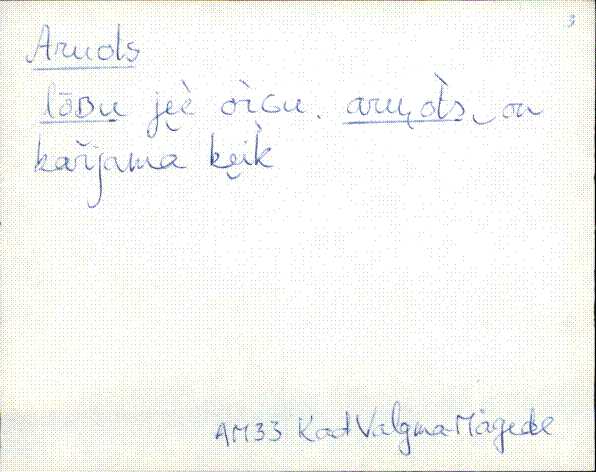 3
Aruots
lōBu jēè òiGu. aruo̤ts on
kařjama kei̭k
AM33 Kad Valgma-Mägede